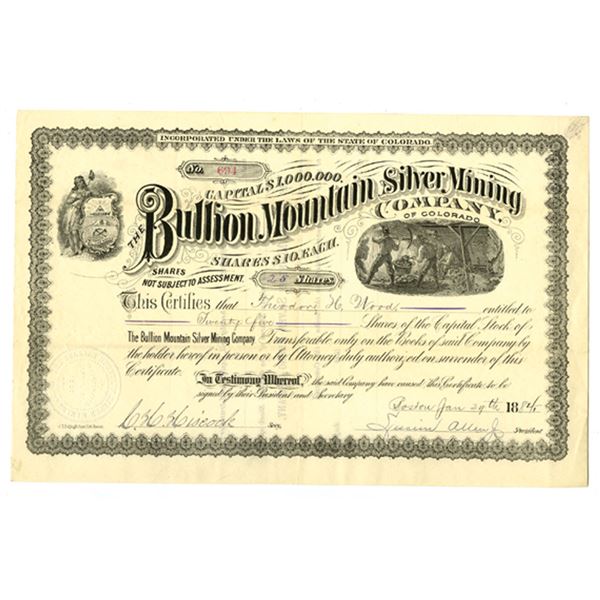 INCORPORATED UNDER THE LAWS OF THE STATE OF COLORADO.
No. 694
CAPITAL $1,000,000.
THE Bullion Mountain Silver Mining
COMPANY,
OF COLORADO
SHARES $10. EACH.
SHARES
NOT SUBJECT TO ASSESSMENT.
25 Shares.
This Certifies that Theodore H. Woods entitled to
Twenty five Shares of the Capital Stock of
The Bullion Mountain Silver Mining Company Transferable only on the Books of said Company by
the holder hereof in person or by Attorney duly authorized on surrender of this
Certificate.
In Testimony Whereof, the said Company have caused this Certificate to be
signed by their President and Secretary
Boston Jan 29th 1884
Hiscock Secy.
Allen Jr President